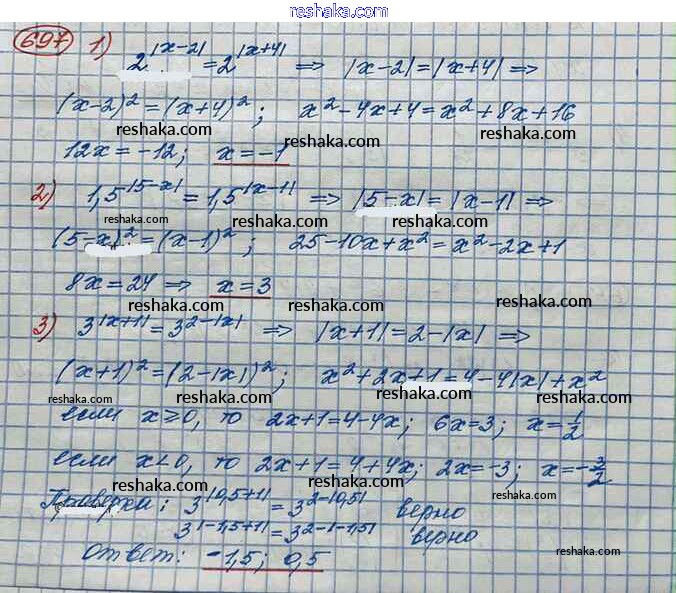 www.reshaka.com
697 1) 2^|x-2| = 2^|x+4| ⇒ |x-2|=|x+4| ⇒
(x-2)²=(x+4)²; x²-4x+4=x²+8x+16
reshaka.com reshaka.com
12x=-12; x=-1 reshaka.com
2) 1,5^|5-x| = 1,5^|x-1| ⇒ |5-x|=|x-1| ⇒
reshaka.com reshaka.com
(5-x)²=(x-1)²; 25-10x+x²=x²-2x+1
8x=24 ⇒ x=3 reshaka.com
reshaka.com
3) 3^|x+1| = 3^2-|x| ⇒ |x+1|=2-|x| ⇒
reshaka.com
(x+1)²=(2-|x|)²; x²+2x+1=4-4|x|+x²
reshaka.com reshaka.com
если x≥0, то 2x+1=4-4x; 6x=3; x=1/2
если x<0, то 2x+1=4+4x; 2x=-3; x=-3/2
reshaka.com reshaka.com
Проверка: 3^|0,5+1| = 3^2-|0,5| верно
reshaka.com
3^|-1,5+1| = 3^2-|-1,5| верно
Ответ: -1,5; 0,5 reshaka.com
reshaka.com